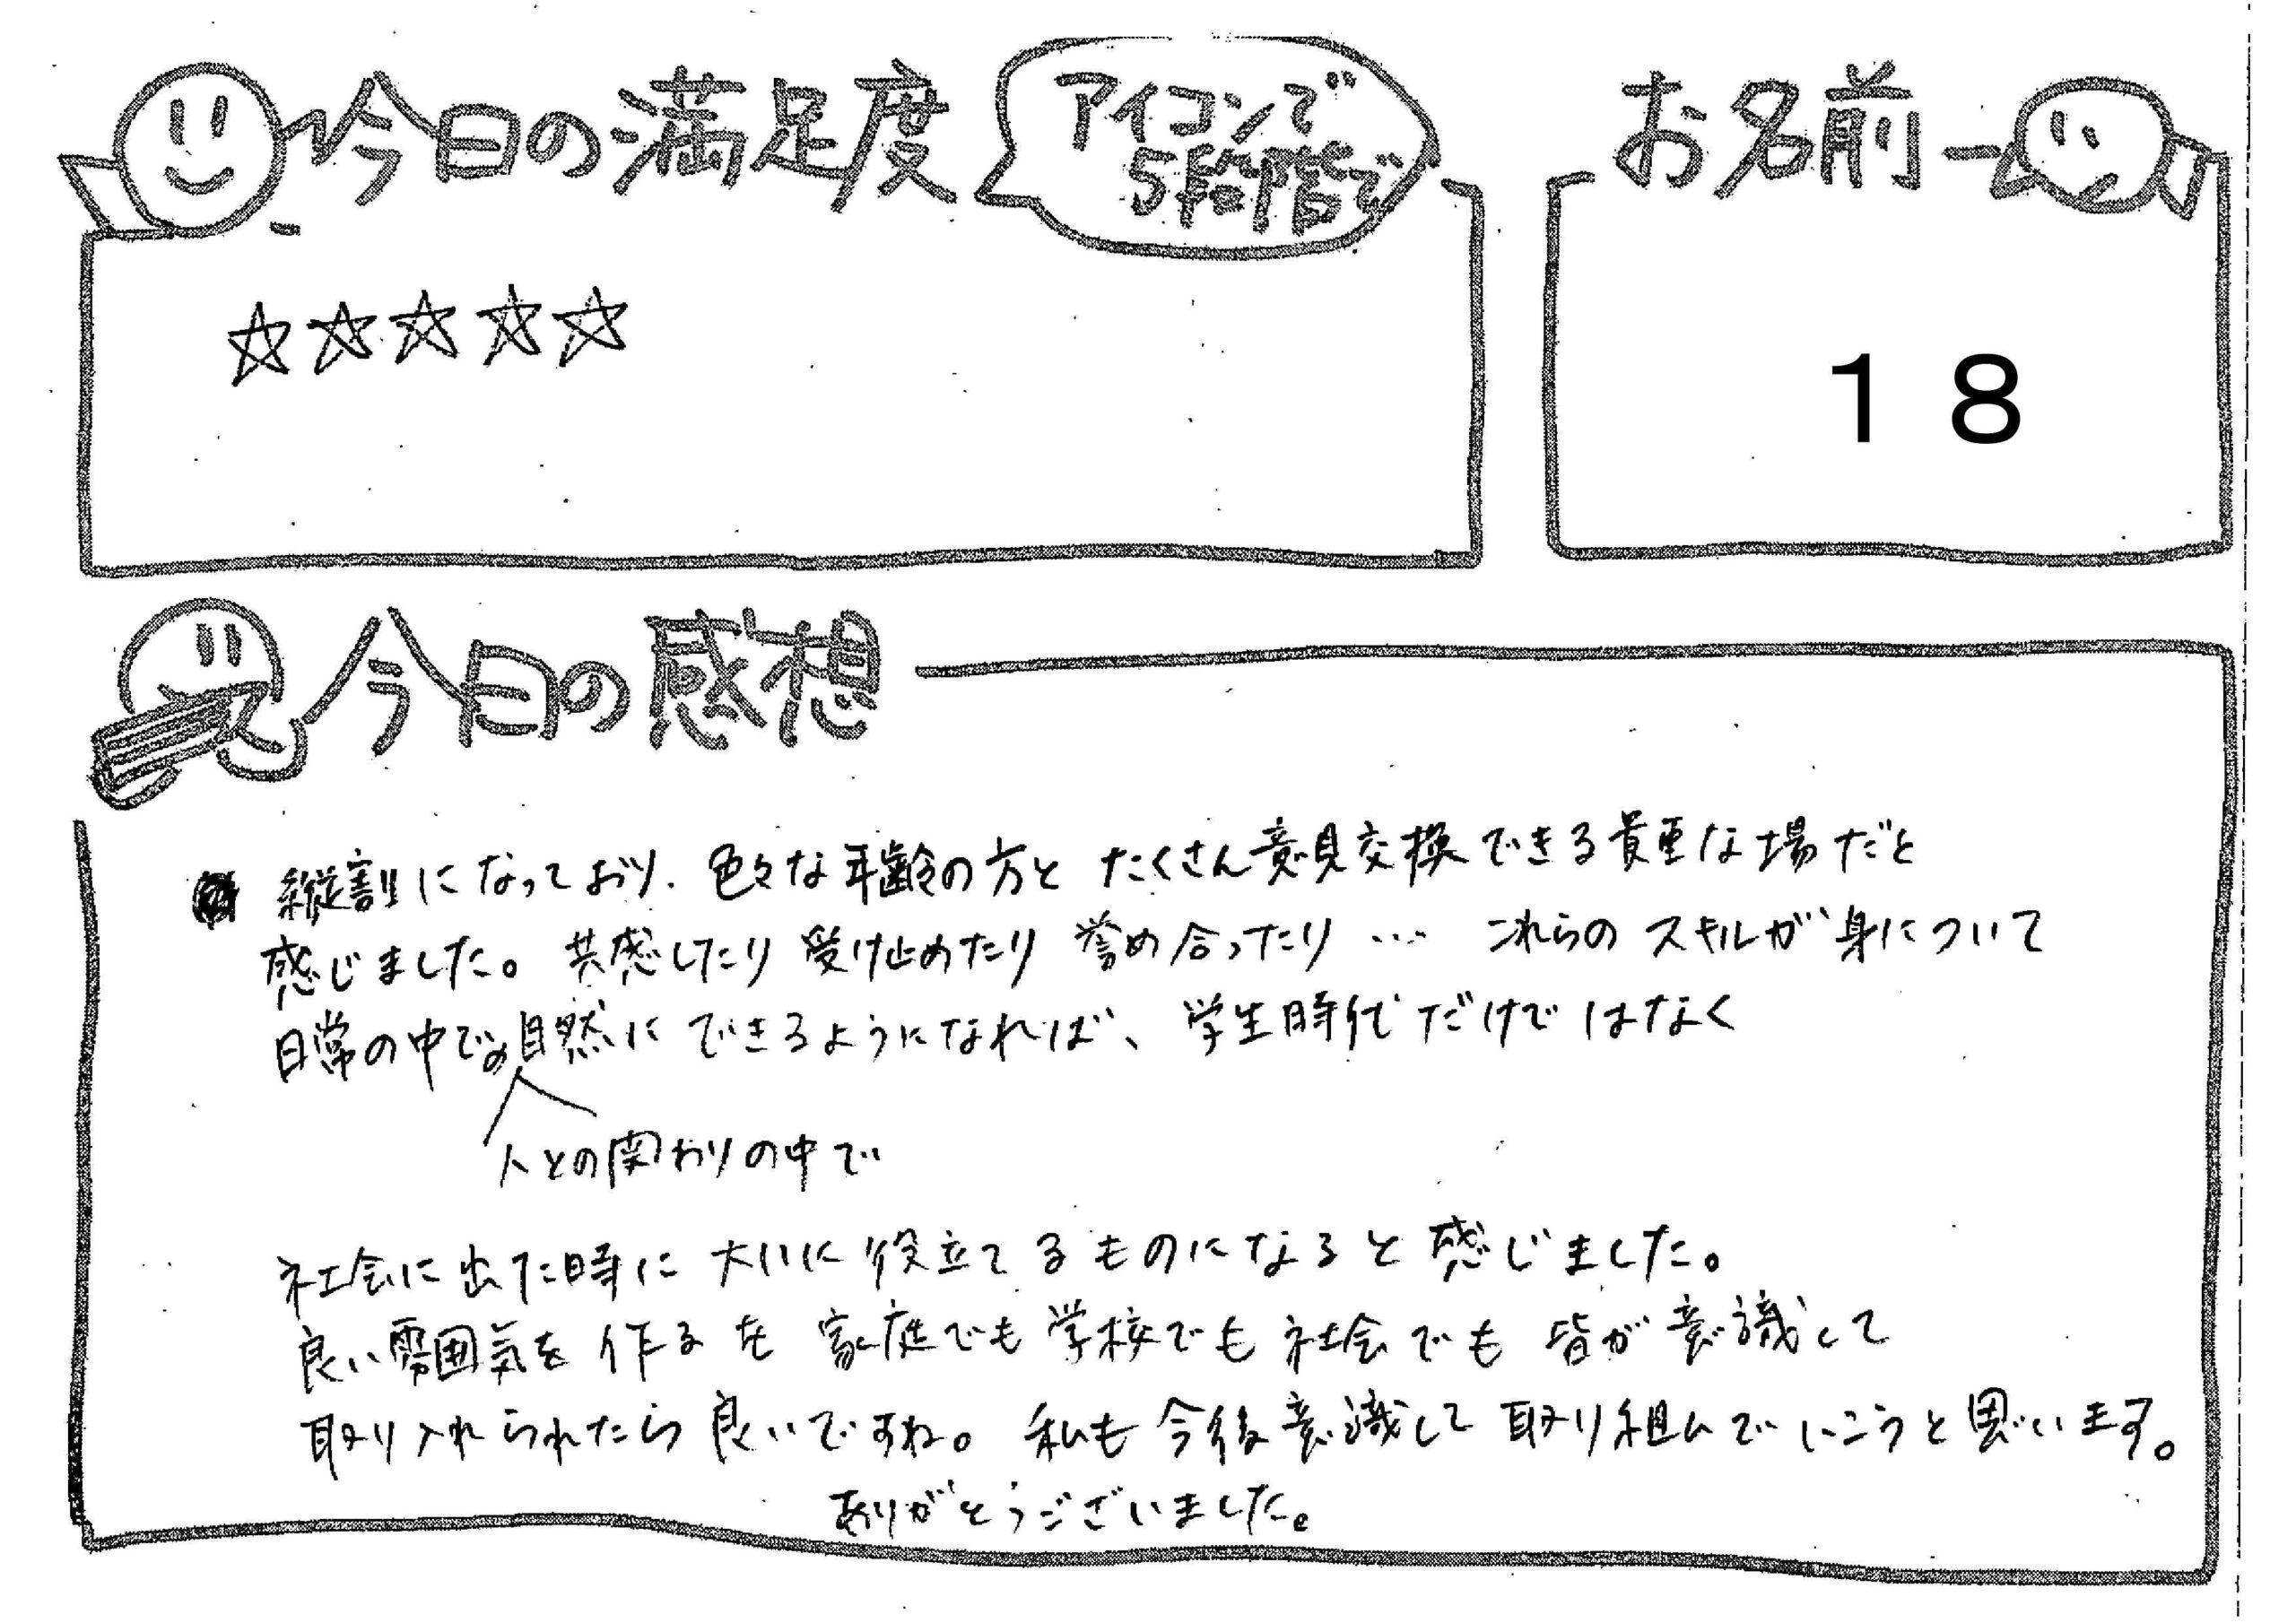 今日の満足度
アイコンで
5段階で
お名前
☆☆☆☆☆
18
今日の感想
縦割になっており、色々な年齢の方と たくさん意見交換できる貴重な場だと
感じました。共感したり 受け止めたり 誉め合ったり … これらの スキルが身について
日常の中での自然に できるようになれば、学生時代だけではなく
人との関わりの中で
社会に出た時に 大いに役立てるものになると感じました。
良い雰囲気を作るを 家庭でも学校でも社会でも 皆が意識して
取り入れられたら良いですね。私も今後意識して取り組んでいこうと思います。
ありがとうございました。